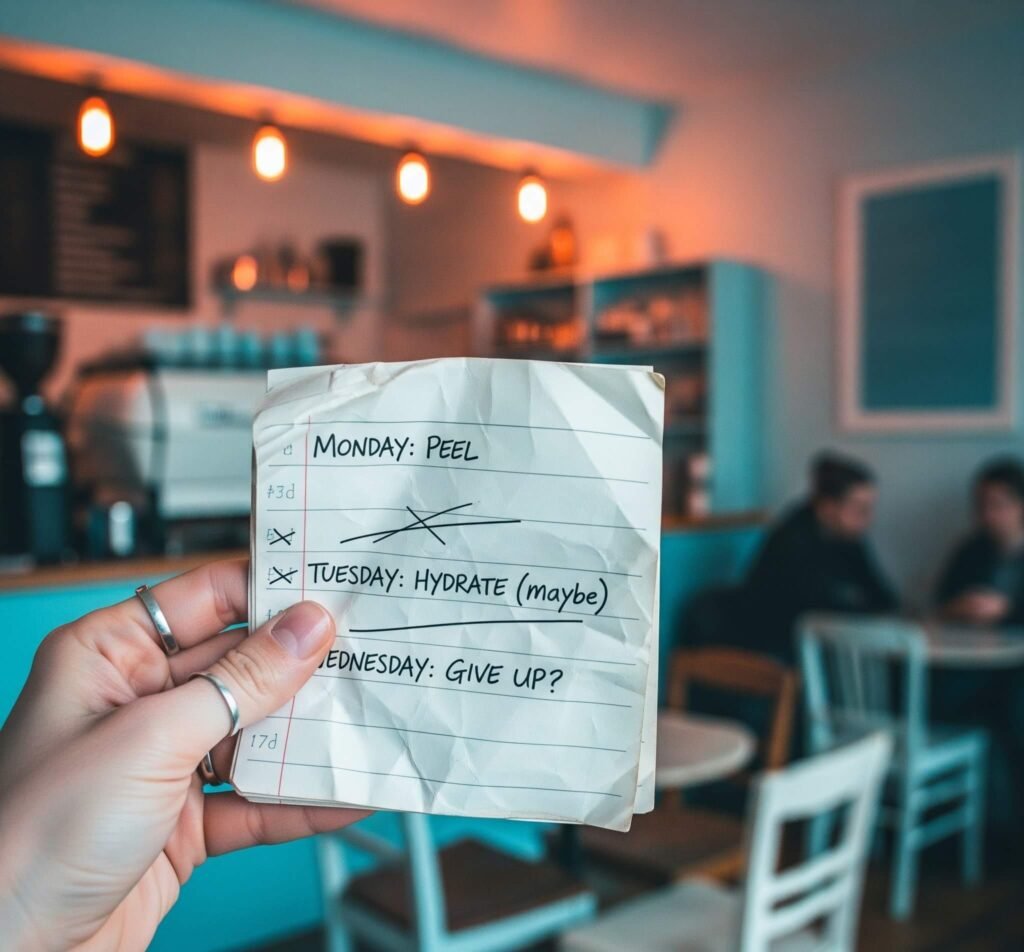 MONDAY: PEEL
TUESDAY: HYDRATE (maybe)
WEDNESDAY: GIVE UP?
17d